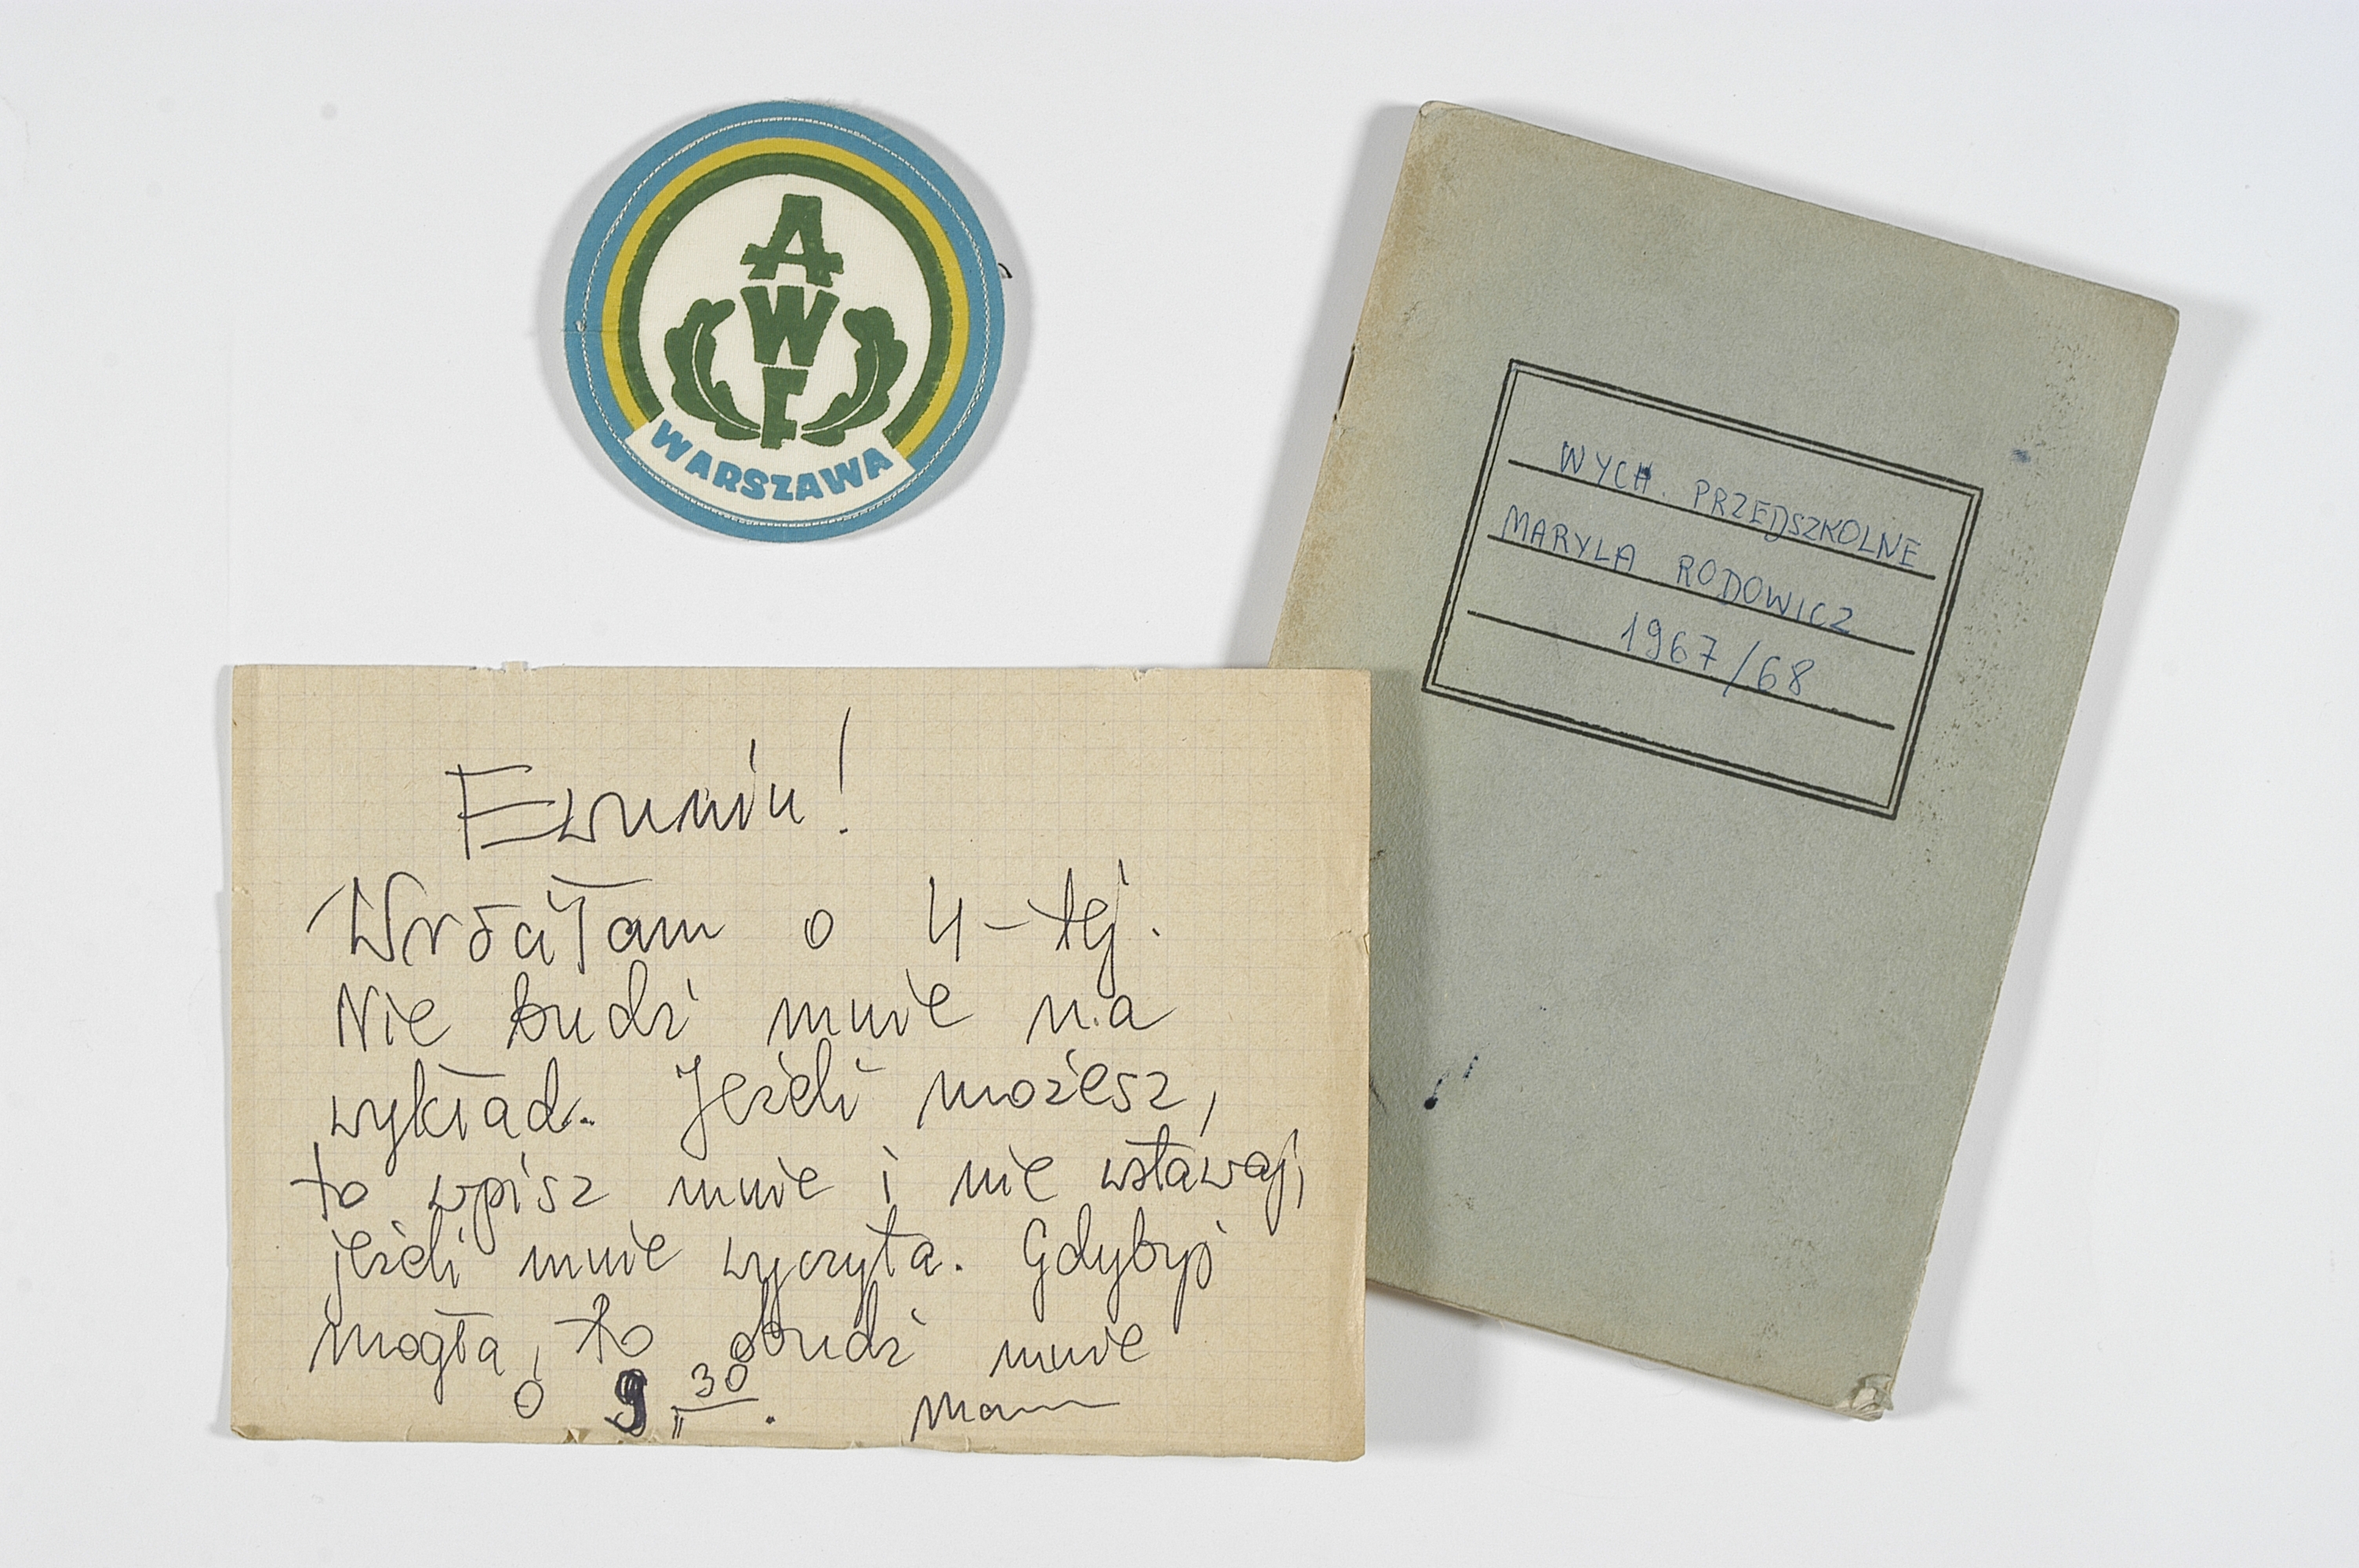 A
W
F
WARSZAWA
WYCH. PRZEDSZKOLNE
MARYLA RODOWICZ
1967/68
Ewuniu!
Wróciłam o 4-tej.
Nie budź mnie na
wykład. Jeżeli możesz,
to wpisz mnie i nie wstawaj,
jeżeli mnie wyczyta. Gdybyś
mogła, to obudź mnie
o 9 30.